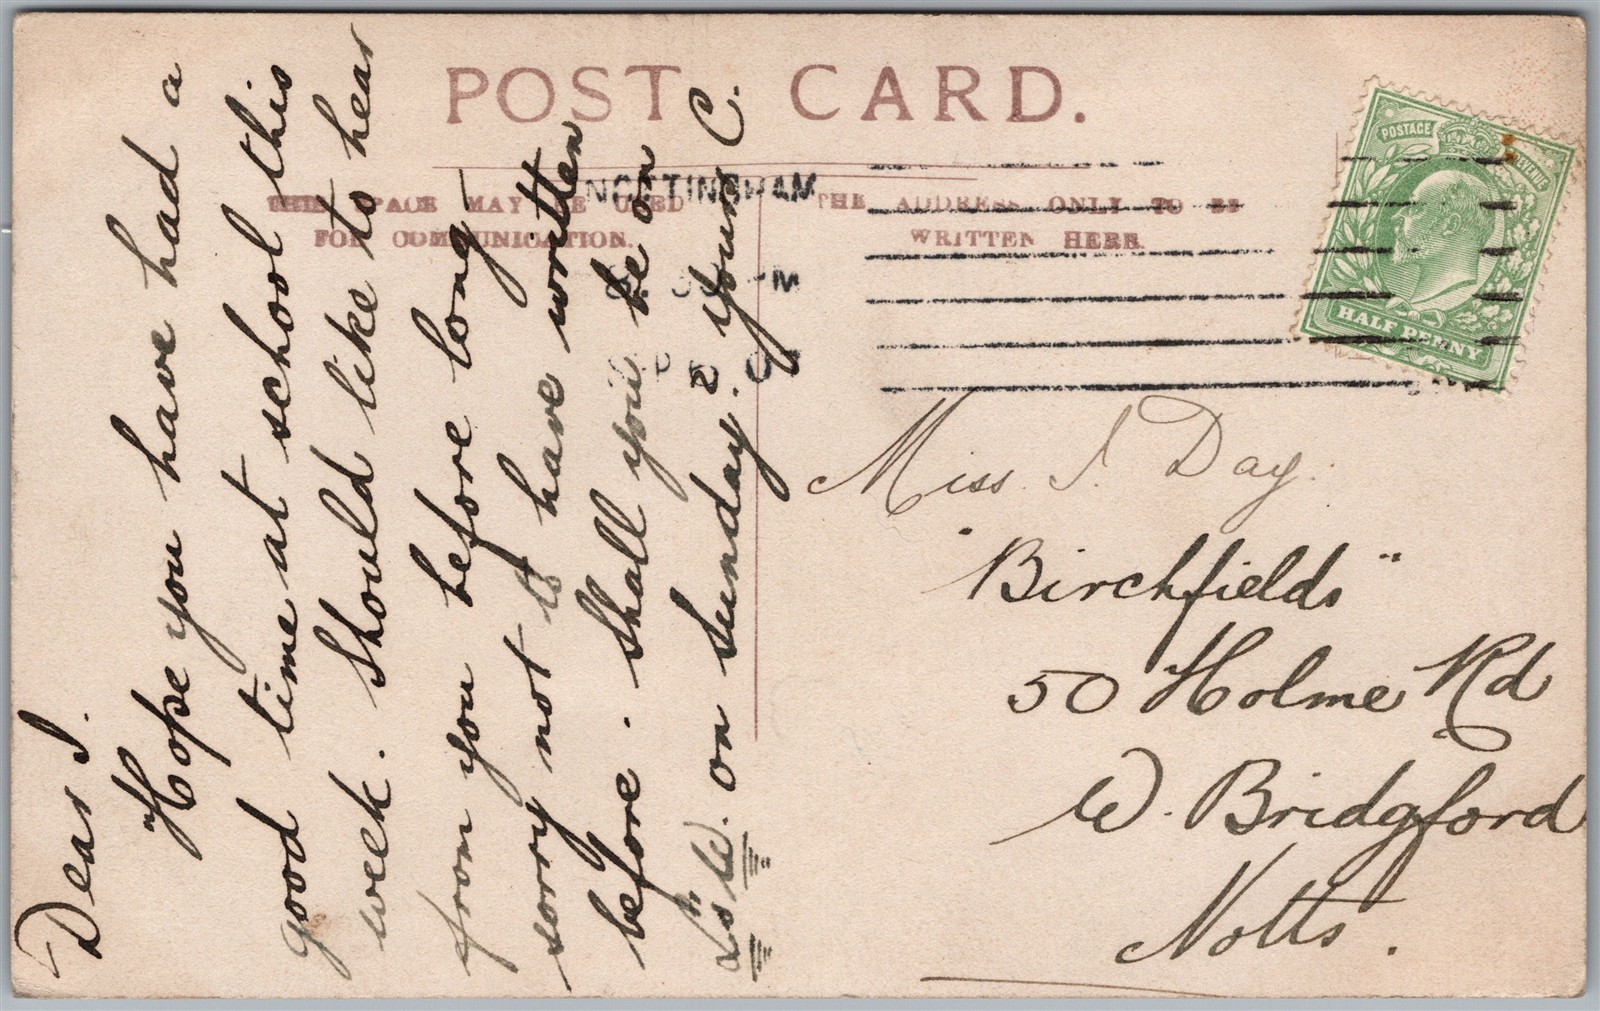 POST CARD.
THIS PAGE MAY BE USED
FOR COMMUNICATION.
THE ADDRESS ONLY TO BE
WRITTEN HERE.
NOTTINGHAM
POSTAGE
REVENUE
HALF PENNY
Dear I.
Hope you have had a
good time at school this
week. Should like to hear
from you before long
sorry not to have written
before. Shall you be on
on Sunday? yours C.
Miss I. Day.
"Birchfields"
50 Holme Rd
W. Bridgford
Notts.